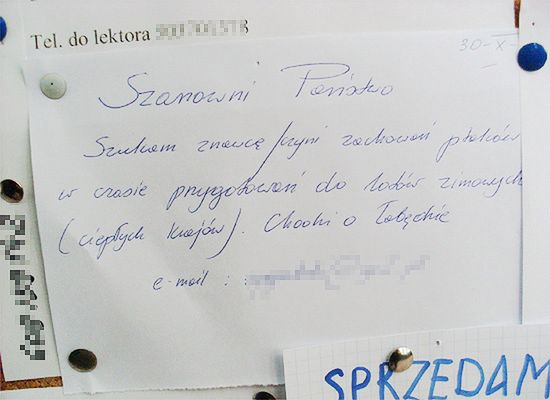 Tel. do lektora
30-X-
Szanowni Państwo
Szukam znawcę/czyni zachowań ptaków
w czasie przygotowań do lotów zimowych
(ciepłych krajów). Chodzi o łabędzie
e-mail :
SPRZEDAM